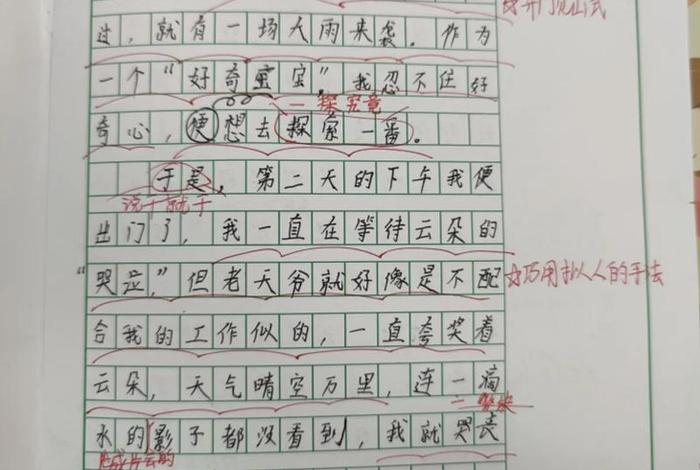 过，就有一场大雨来袭。作为
一个“好奇宝宝”，我忍不住好
一探究竟
奇心，便想去探索一番。
于是，第二天的下午我便
说干就干
出门了，我一直在等待云朵的
“哭泣”，但老天爷就好像是不配
巧用拟人的手法
合我的工作似的，一直夸奖着
云朵，天气晴空万里，连一滴
水的影子都没看到，我就哭丧